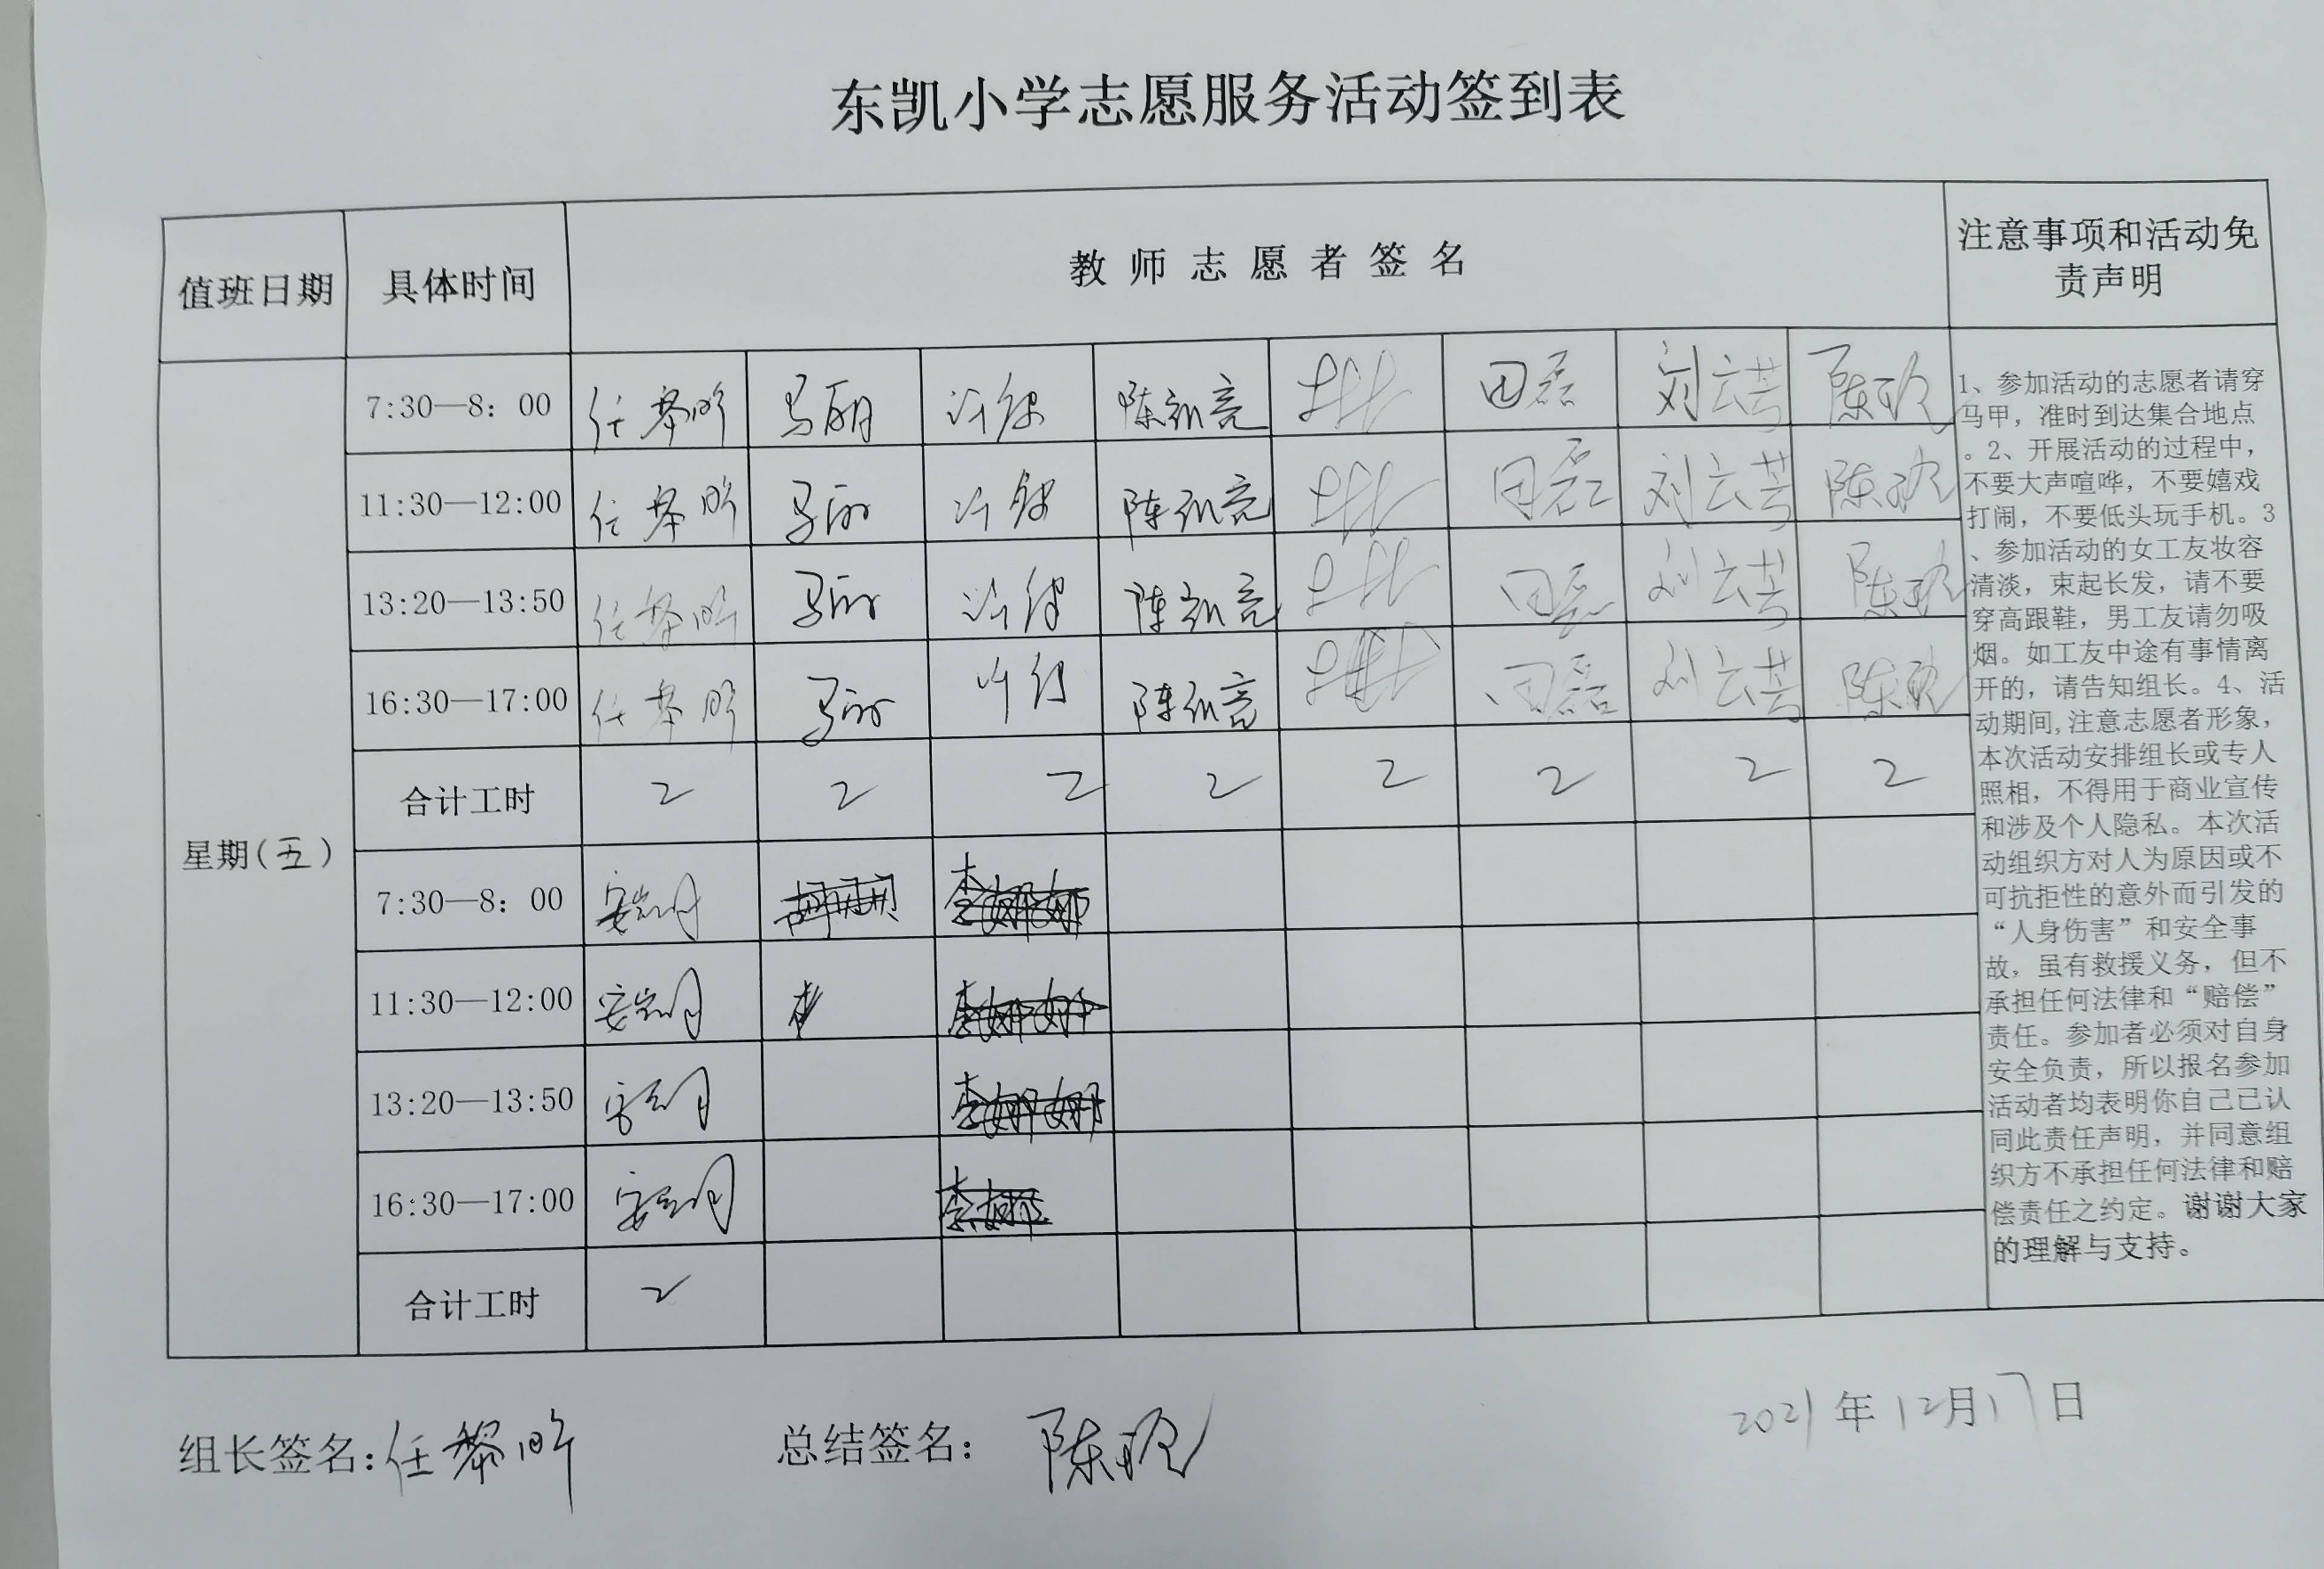 东凯小学志愿服务活动签到表
值班日期 具体时间 教师志愿者签名 注意事项和活动免
责声明
星期(五)
7:30—8：00 任黎昕 马丽 陈训亮 田磊 刘云芸 陈欣
11:30—12:00 任黎昕 马丽 陈训亮 田磊 刘云芸 陈欣
13:20—13:50 任黎昕 马丽 陈训亮 田磊 刘云芸 陈欣
16:30—17:00 任黎昕 马丽 陈训亮 田磊 刘云芸 陈欣
合计工时 2 2 2 2 2 2 2 2
7:30—8：00
11:30—12:00
13:20—13:50
16:30—17:00
合计工时 2
1、参加活动的志愿者请穿
马甲，准时到达集合地点
。2、开展活动的过程中，
不要大声喧哗，不要嬉戏
打闹，不要低头玩手机。3
、参加活动的女工友妆容
清淡，束起长发，请不要
穿高跟鞋，男工友请勿吸
烟。如工友中途有事情离
开的，请告知组长。4、活
动期间,注意志愿者形象，
本次活动安排组长或专人
照相，不得用于商业宣传
和涉及个人隐私。本次活
动组织方对人为原因或不
可抗拒性的意外而引发的
“人身伤害”和安全事
故，虽有救援义务，但不
承担任何法律和“赔偿”
责任。参加者必须对自身
安全负责，所以报名参加
活动者均表明你自己已认
同此责任声明，并同意组
织方不承担任何法律和赔
偿责任之约定。谢谢大家
的理解与支持。
组长签名:任黎昕 总结签名：陈欣 2021年12月17日